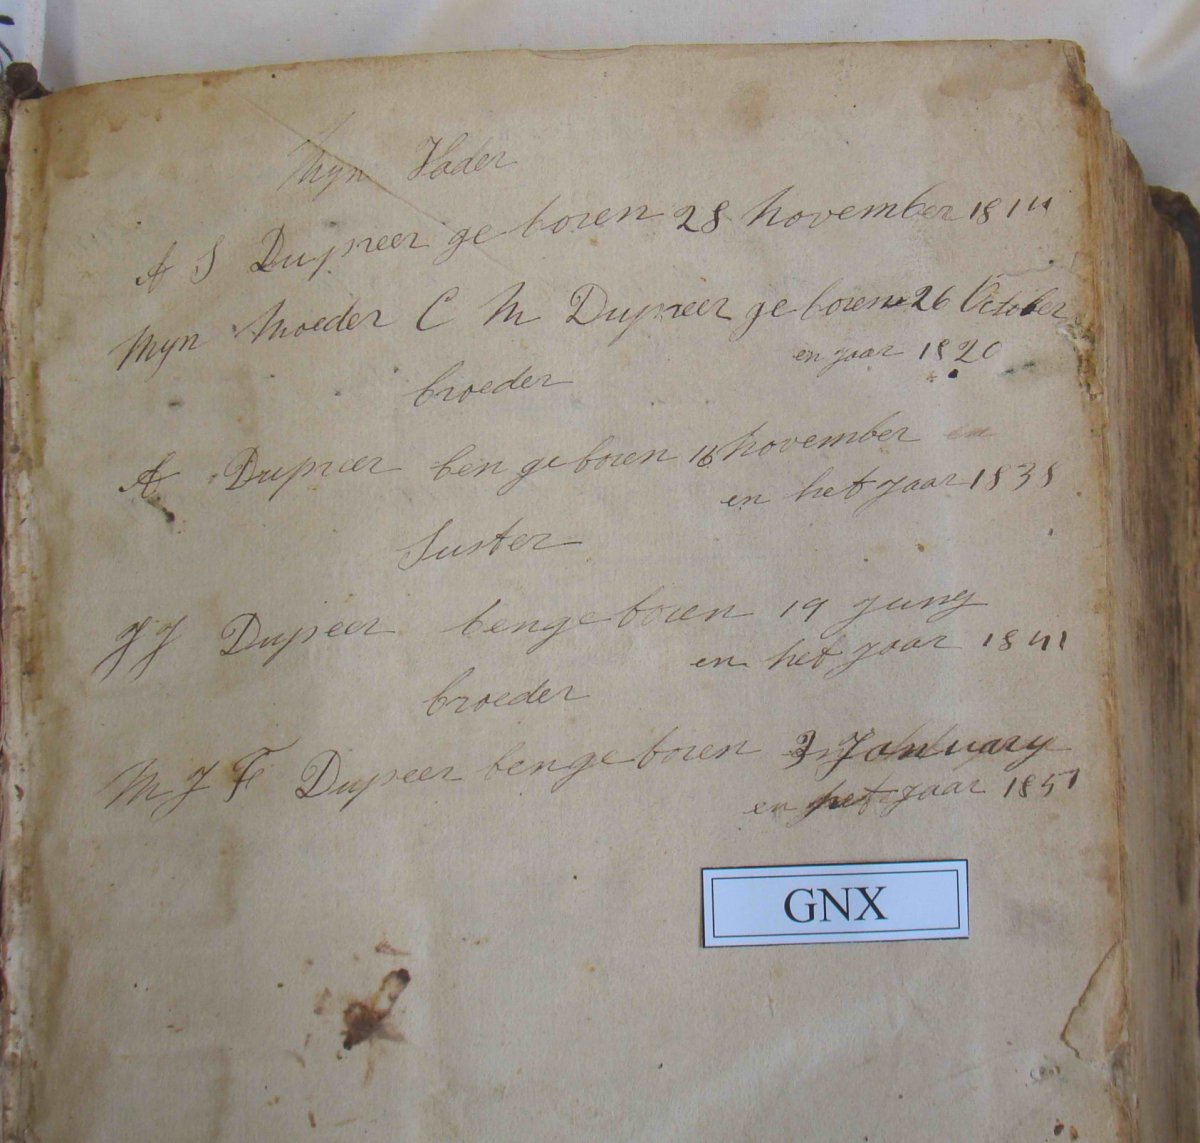 Myn Vader
A S Dupreer ge boren 28 November 1814
Myn Moeder C M Dupreer ge boren 26 October
en jaar 1820
broeder
A Dupreer ben ge boren 16 November en
en het jaar 1838
Suster
J J Dupeer ben ge boren 19 Juny
en het jaar 1841
broeder
M J F Dupeer ben ge boren 3 January
en het jaar 1851
GNX